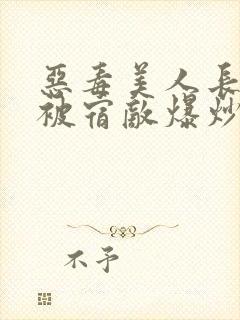 惡毒美人長
被宿敵爆炒
不予